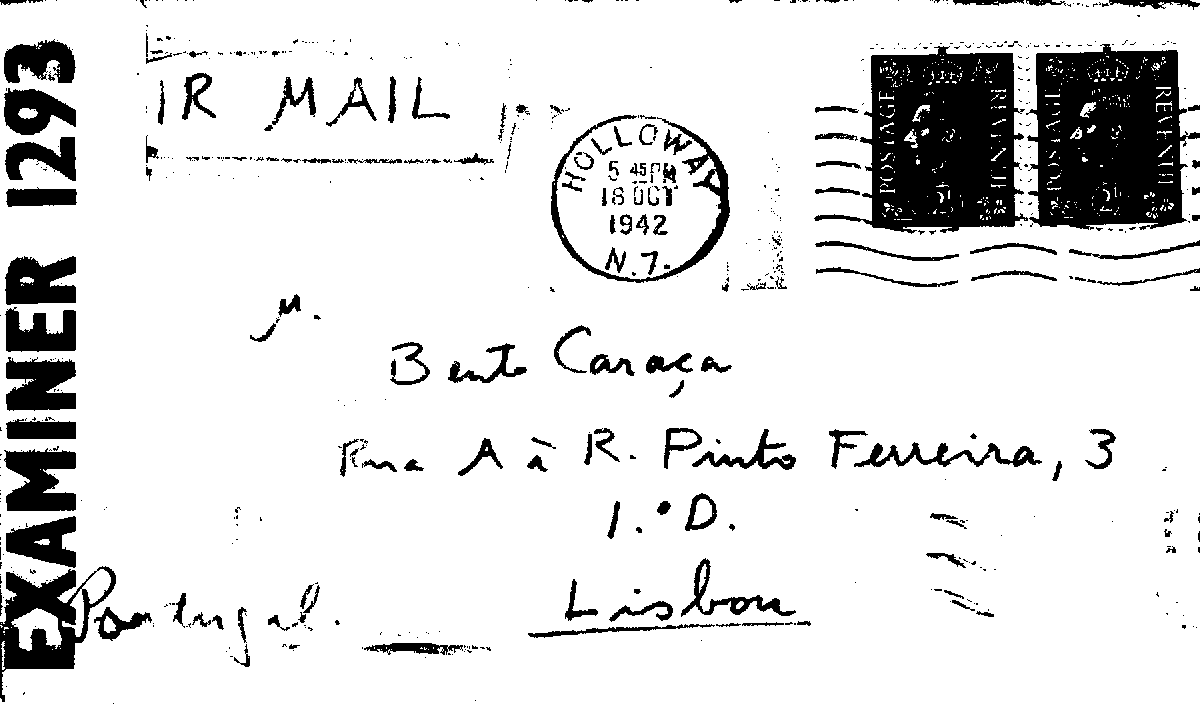 EXAMINER 1293
IR MAIL
HOLLOWAY
5 45 PM
18 OCT
1942
N.7.
POSTAGE REVENUE
POSTAGE REVENUE
M.
Bento Caraça
Rua A à R. Pinto Ferreira, 3
1.º D.
Lisbon
Portugal.